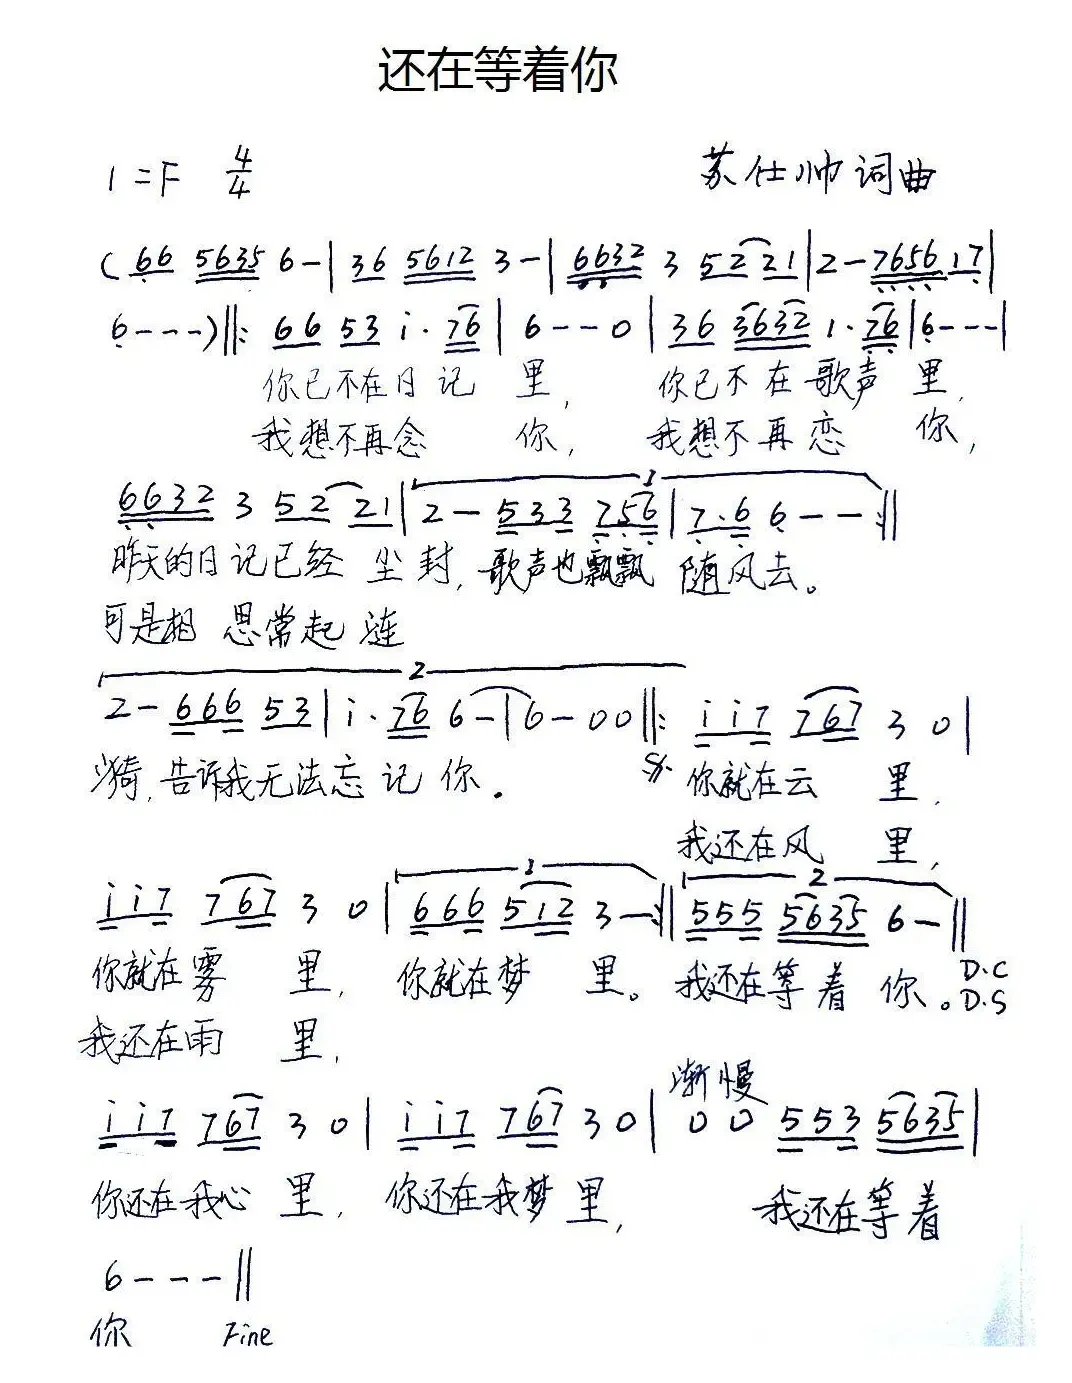 还在等着你
1=F 4/4 苏仕帅词曲
( 66 5635 6-|36 5612 3-|6632 3 52 21|2-7656 17|
6---)‖: 66 53 i·76|6--0|36 3632 1·76|6---|
你已不在日记 里, 你已不在歌声 里,
我想不再念 你, 我想不再恋 你,
6632 3 52 21|1 2-533 756|7·6 6--:‖
昨天的日记已经 尘封,歌声也飘飘 随风去。
可是相 思常起 涟
2
2-666 53|i·76 6-|6-00‖: ii7 767 30|
漪,告诉我无法忘 记 你. 𝄋 你就在云 里,
我还在风 里,
1 2
ii7 767 30|666 512 3-:‖555 5635 6-‖
你就在雾 里, 你就在梦 里。我还在等着 你。D.C
D.S
我还在雨 里,
渐慢
ii7 767 30|ii7 767 30|00 553 5635|
你还在我心 里, 你还在我梦里, 我还在等着
6---‖
你 Fine